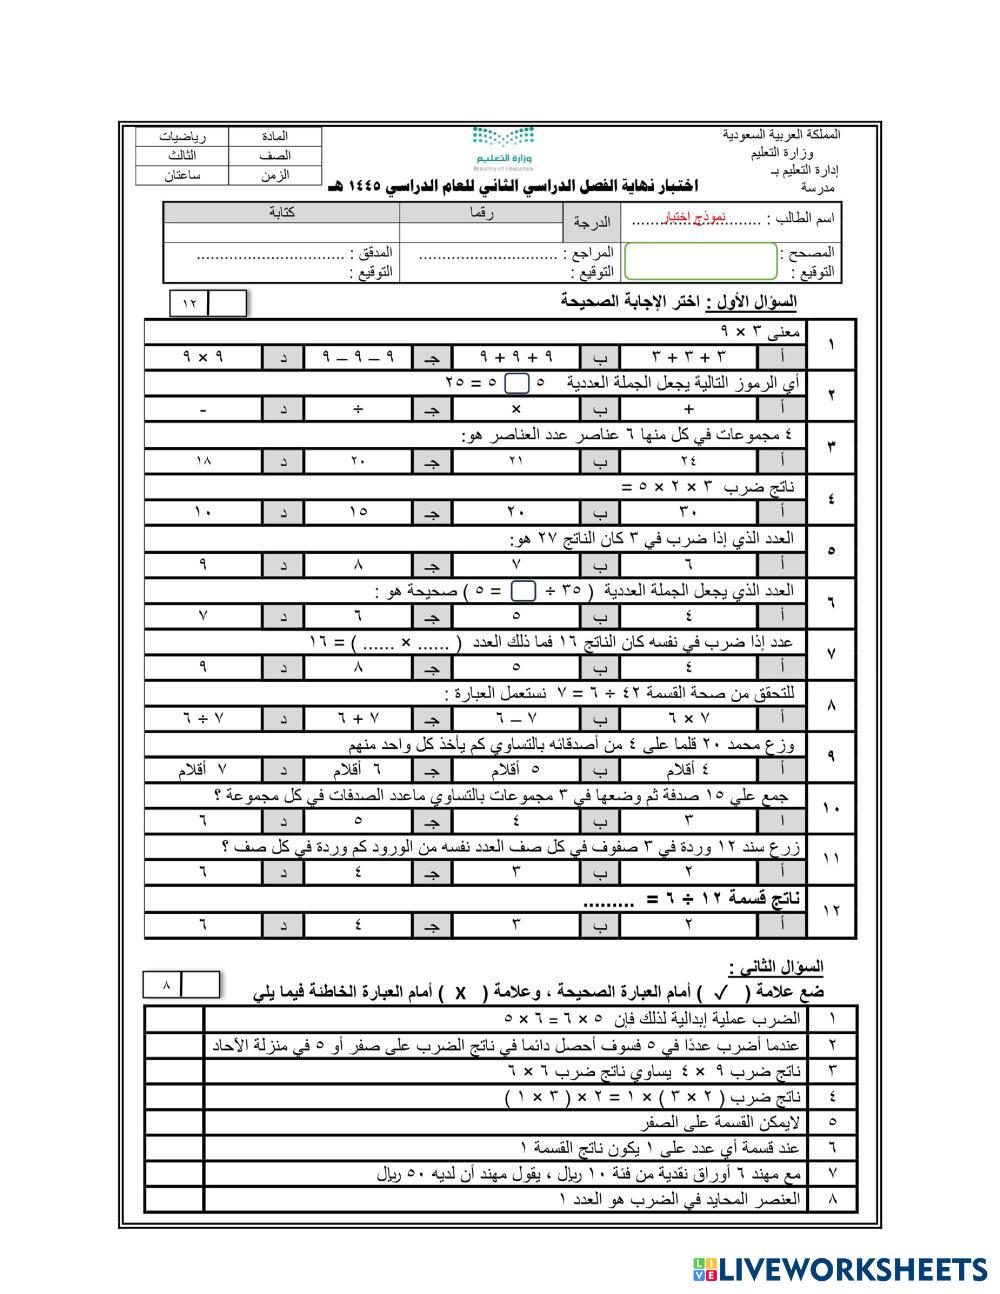 المملكة العربية السعودية
وزارة التعليم
إدارة التعليم بـ
مدرسة
وزارة التعليم
Ministry of Education
المادة رياضيات
الصف الثالث
الزمن ساعتان
اختبار نهاية الفصل الدراسي الثاني للعام الدراسي ١٤٤٥ هـ
اسم الطالب : ............................ نموذج اختبار
الدرجة رقما كتابة
المصحح : المراجع : .............................. المدقق : ................................
التوقيع : التوقيع : التوقيع :
السؤال الأول : اختر الإجابة الصحيحة ١٢
١ معنى ٣ × ٩
أ ٣ + ٣ + ٣ ب ٩ + ٩ + ٩ جـ ٩ – ٩ – ٩ د ٩ × ٩
٢ أي الرموز التالية يجعل الجملة العددية ٥ □ ٥ = ٢٥
أ + ب × جـ ÷ د -
٣ ٤ مجموعات في كل منها ٦ عناصر عدد العناصر هو:
أ ٢٤ ب ٢١ جـ ٢٠ د ١٨
٤ ناتج ضرب ٣ × ٢ × ٥ =
أ ٣٠ ب ٢٠ جـ ١٥ د ١٠
٥ العدد الذي إذا ضرب في ٣ كان الناتج ٢٧ هو:
أ ٦ ب ٧ جـ ٨ د ٩
٦ العدد الذي يجعل الجملة العددية ( ٣٥ ÷ □ = ٥ ) صحيحة هو :
أ ٤ ب ٥ جـ ٦ د ٧
٧ عدد إذا ضرب في نفسه كان الناتج ١٦ فما ذلك العدد ( ...... × ...... ) = ١٦
أ ٤ ب ٥ جـ ٨ د ٩
٨ للتحقق من صحة القسمة ٤٢ ÷ ٦ = ٧ نستعمل العبارة :
أ ٧ × ٦ ب ٧ – ٦ جـ ٧ + ٦ د ٧ ÷ ٦
٩ وزع محمد ٢٠ قلما على ٤ من أصدقائه بالتساوي كم يأخذ كل واحد منهم
أ ٤ أقلام ب ٥ أقلام جـ ٦ أقلام د ٧ أقلام
١٠ جمع علي ١٥ صدفة ثم وضعها في ٣ مجموعات بالتساوي ماعدد الصدفات في كل مجموعة ؟
ا ٣ ب ٤ جـ ٥ د ٦
١١ زرع سند ١٢ وردة في ٣ صفوف في كل صف العدد نفسه من الورود كم وردة في كل صف ؟
أ ٢ ب ٣ جـ ٤ د ٦
١٢ ناتج قسمة ١٢ ÷ ٦ = .........
أ ٢ ب ٣ جـ ٤ د ٦
السؤال الثاني :
ضع علامة ( ✓ ) أمام العبارة الصحيحة ، وعلامة ( X ) أمام العبارة الخاطئة فيما يلي ٨
١ الضرب عملية إبدالية لذلك فإن ٥ × ٦ = ٦ × ٥
٢ عندما أضرب عددًا في ٥ فسوف أحصل دائما في ناتج الضرب على صفر أو ٥ في منزلة الآحاد
٣ ناتج ضرب ٩ × ٤ يساوي ناتج ضرب ٦ × ٦
٤ ناتج ضرب ( ٢ × ٣ ) × ١ = ٢ × ( ٣ × ١ )
٥ لايمكن القسمة على الصفر
٦ عند قسمة أي عدد على ١ يكون ناتج القسمة ١
٧ مع مهند ٦ أوراق نقدية من فئة ١٠ ريال ، يقول مهند أن لديه ٥٠ ريال
٨ العنصر المحايد في الضرب هو العدد ١
LIVE LIVEWORKSHEETS